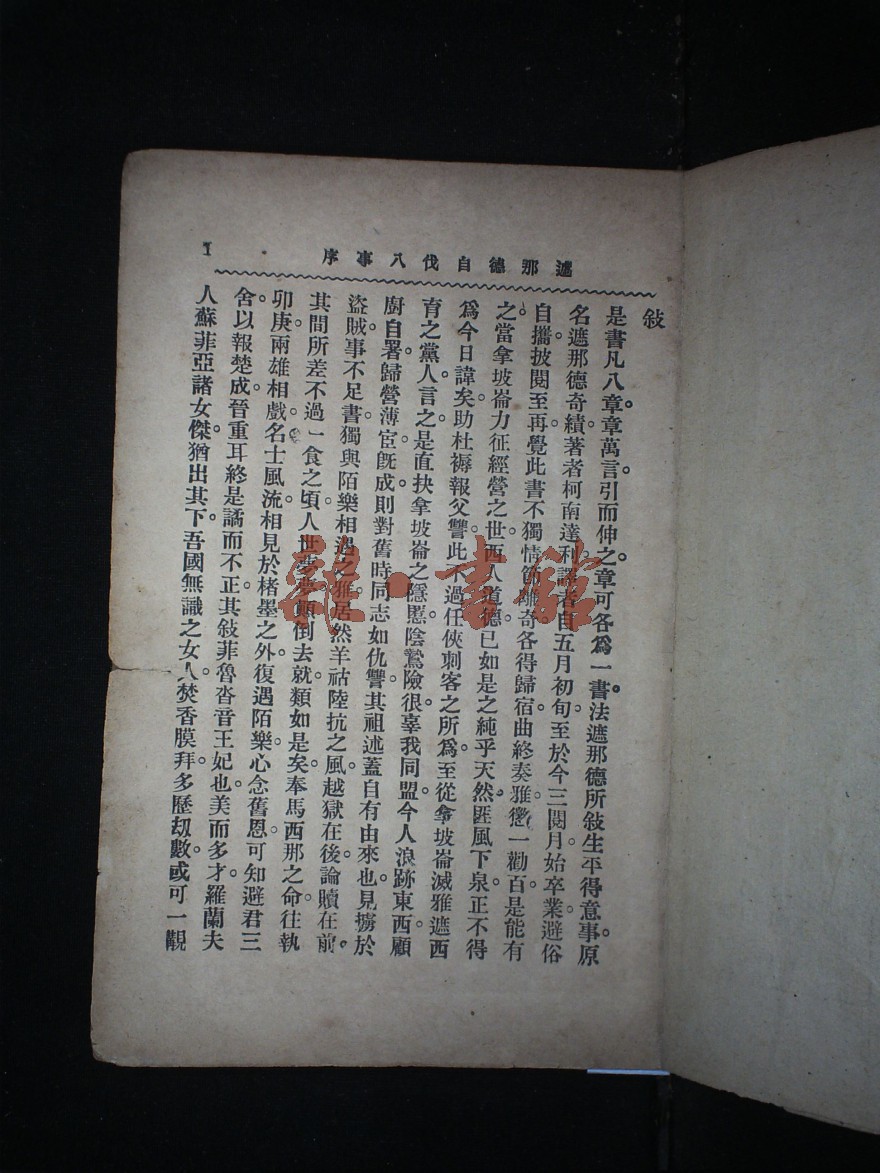 遮那德自伐八事序
1
敍
是書凡八章。章萬言。引而伸之。章可各爲一書。法遮那德所敍生平得意事。原
名遮那德奇績。著者柯南達利。譯者自五月初旬至於今三閱月始卒業。避俗
自攜披閱至再。覺此書不獨情節雖奇。各得歸宿。曲終奏雅。懲一勸百。是能有
之。當拿坡崙力征經營之世。西人道德已如是之純乎天然。匪風下泉。正不得
爲今日諱矣。助杜褥報父讐。此不過任俠刺客之所爲。至從拿坡崙滅雅遮西
育之黨人言之。是直抉拿坡崙之隱慝。陰鷙險很。辜我同盟。今人浪跡東西。顧
廚自署。歸營薄宦。旣成則對舊時同志如仇讐。其祖述蓋自有由來也。見擄於
盜賊。事不足書。獨與陌樂相遇之雅。居然羊祜陸抗之風。越獄在後。論贖在前。
其間所差不過一食之頃。人世夢夢。顚倒去就。類如是矣。奉馬西那之命往執
卯庚。兩雄相戲。名士風流。相見於楮墨之外。復遇陌樂。心念舊恩。可知避君三
舍以報楚成。晉重耳終是譎而不正。其敍菲魯沓音王妃也。美而多才。羅蘭夫
人蘇菲亞諸女傑。猶出其下。吾國無識之女人。焚香膜拜。多歷劫數。或可一覯
雜·書館